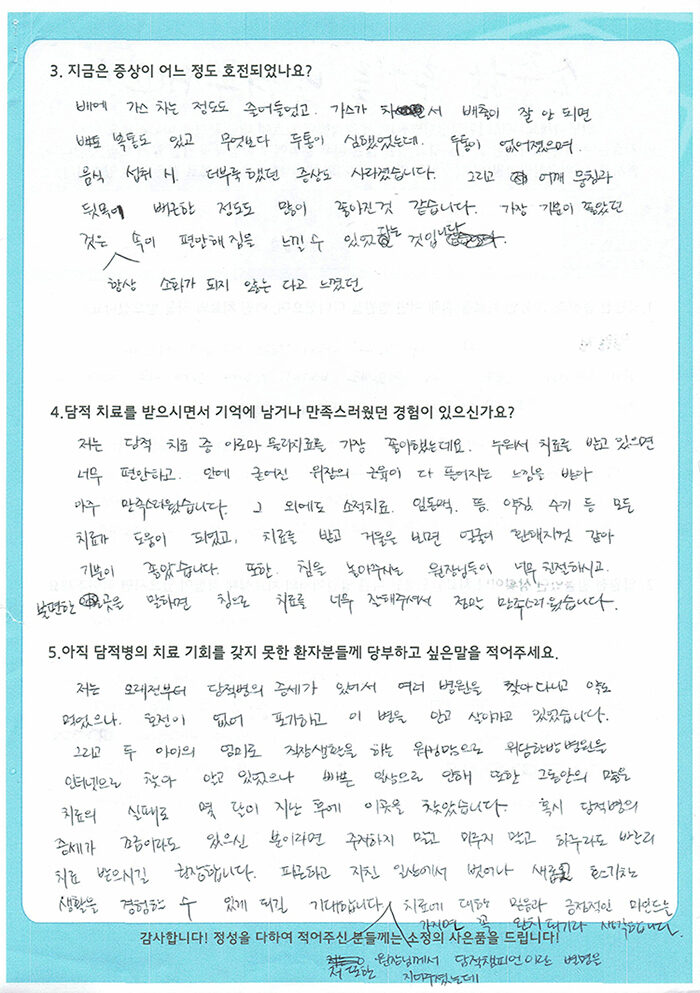 3. 지금은 증상이 어느 정도 호전되었나요?
배에 가스 차는 정도도 줄어들었고. 가스가 차서 배출이 잘 안 되면
복통도 있고 무엇보다 두통이 심했었는데. 두통이 없어졌으며.
음식 섭취 시. 더부룩했던 증상도 사라졌습니다. 그리고 어깨 뭉침과
뒷목이 뻐근한 정도도 많이 좋아진것 같습니다. 가장 기분이 좋았던
것은 속이 편안해 짐을 느낄 수 있었다는 것입니다.
항상 소화가 되지 않는 다고 느꼈던
4.담적 치료를 받으시면서 기억에 남거나 만족스러웠던 경험이 있으신가요?
저는 담적 치료 중 아로마 물리치료를 가장 좋아했는데요. 누워서 치료를 받고 있으면
너무 편안하고. 안에 굳어진 위장의 근육이 다 풀어지는 느낌을 받아
아주 만족스러웠습니다. 그 외에도 소적치료. 뜸. 약침 수기 등 모든
치료가 도움이 되었고, 치료를 받고 거울을 보면 얼굴이 환해진것 같아
기분이 좋았습니다. 또한. 침을 놓아주시는 원장님들이 너무 친절하시고.
불편한 곳을 말하면 침으로 치료를 너무 잘해주셔서 정말 만족스러웠습니다.
5.아직 담적병의 치료 기회를 갖지 못한 환자분들께 당부하고 싶은말을 적어주세요.
저는 오래전부터 담적병의 증세가 있어서 여러 병원을 찾아다니고 약도
먹었으나. 호전이 없어 포기하고 이 병을 안고 살아가고 있었습니다.
그리고 두 아이의 엄마로 직장생활을 하는 워킹맘으로 위담한방병원을
인터넷으로 찾아 알고 있었으나 바쁜 일상으로 인해 또한 그동안의 많은
치료의 실패로 몇 달이 지난 후에 이곳을 찾았습니다. 혹시 담적병의
증세가 조금이라도 있으신 분이라면 주저하지 말고 미루지 말고 하루라도 빨리
치료 받으시길 권장합니다. 피곤하고 지친 일상에서 벗어나 새롭고 활기차는
생활을 경험할 수 있게 되길 기대합니다. 치료에 대한 믿음과 긍정적인 마인드를
가지면 꼭 완치 되기라 생각합니다.
감사합니다! 정성을 다하여 적어주신 분들께는 소정의 사은품을 드립니다!
또한 원장님께서 담적챔피언이란 별명을
지어주셨는데